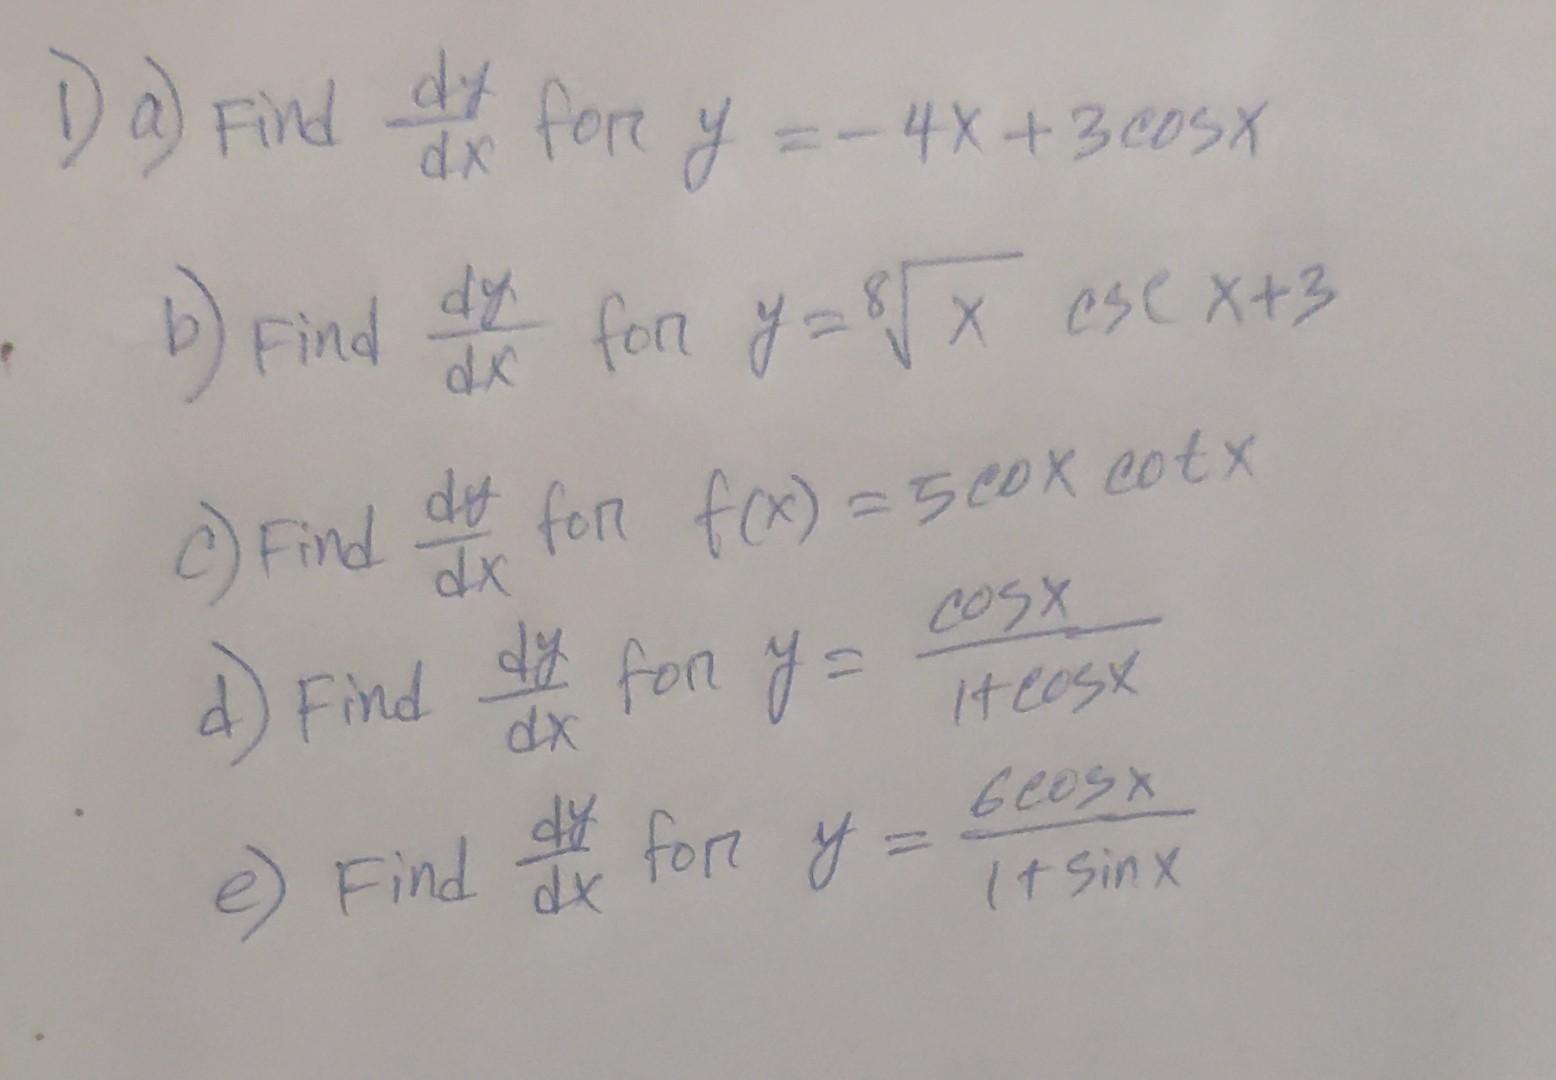 1) a) Find dy/dx for y = -4x + 3cosx
b) Find dy/dx for y = ⁸√x csc x+3
c) Find dy/dx for f(x) = 5cox cotx
d) Find dy/dx for y = cosx/1+cosx
e) Find dy/dx for y = 6cosx/1+sinx